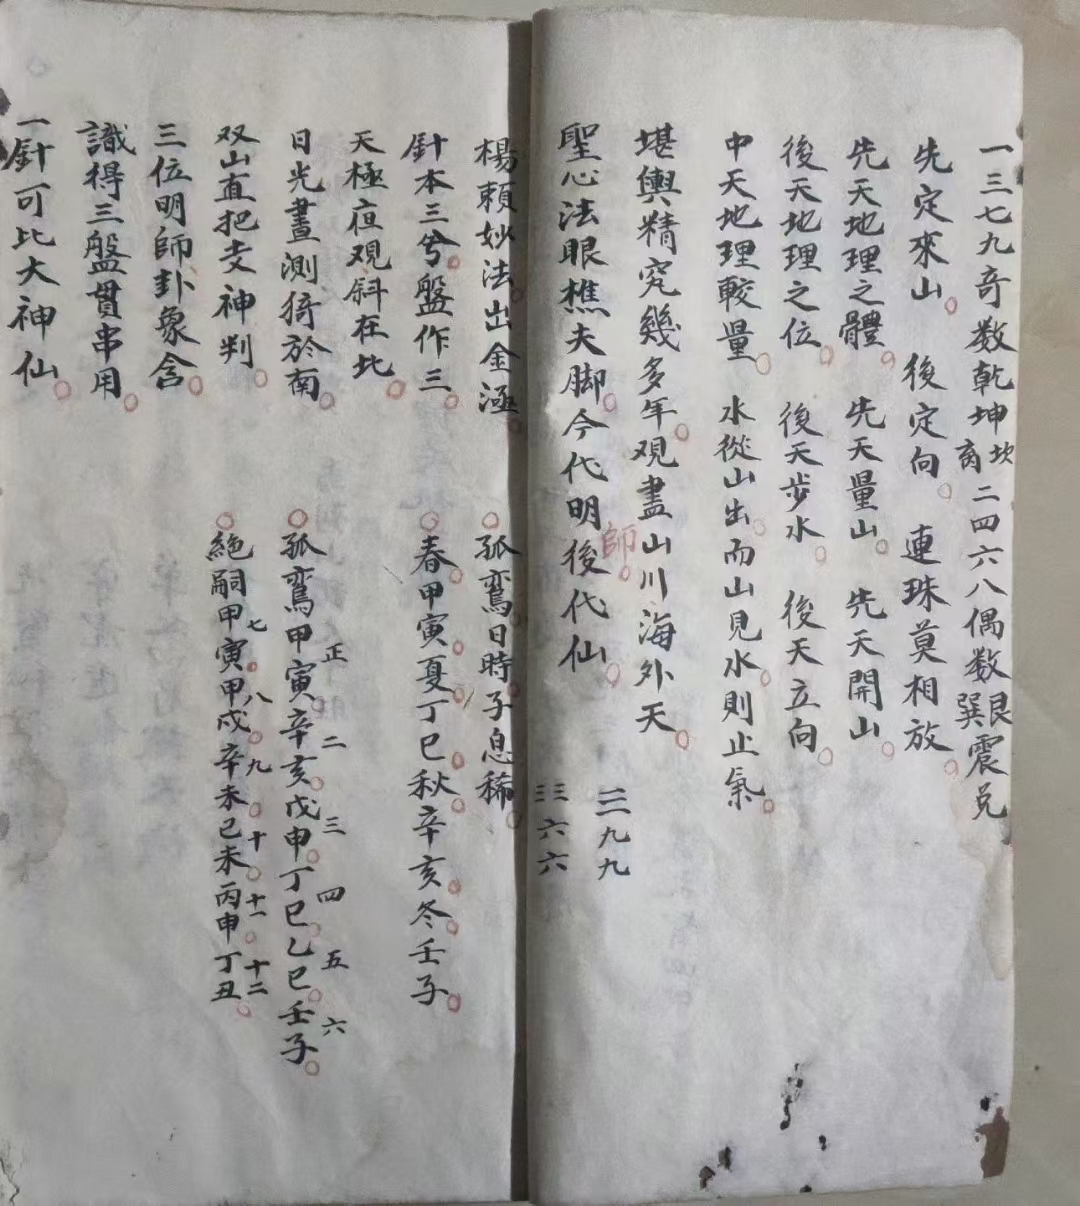 一三七九奇数乾坤坎离二四六八偶数巽艮震兑
先定來山 後定向 連珠莫相放
先天地理之體 先天量山 先天開山
後天地理之位 後天步水 後天立向
中天地理較量 水從山出而山見水則止氣
堪輿精究幾多年观盡山川海外天
三三九九
聖心法眼樵夫脚今代明師後代仙
三三六六
楊賴妙法出金涵
針本三兮盤作三
天極夜观斜在北
日光晝測猗於南
双山直把支神判
三位明師卦象含
識得三盤貫串用
一針可比大神仙
孤鸞日時子息稀
春甲寅夏丁巳秋辛亥冬壬子
正 二 三 四 五 六
孤鸞甲寅辛亥戊申丁巳乙巳壬子
七 八 九 十 十一 十二
絕嗣甲寅甲戌辛未己未丙申丁丑